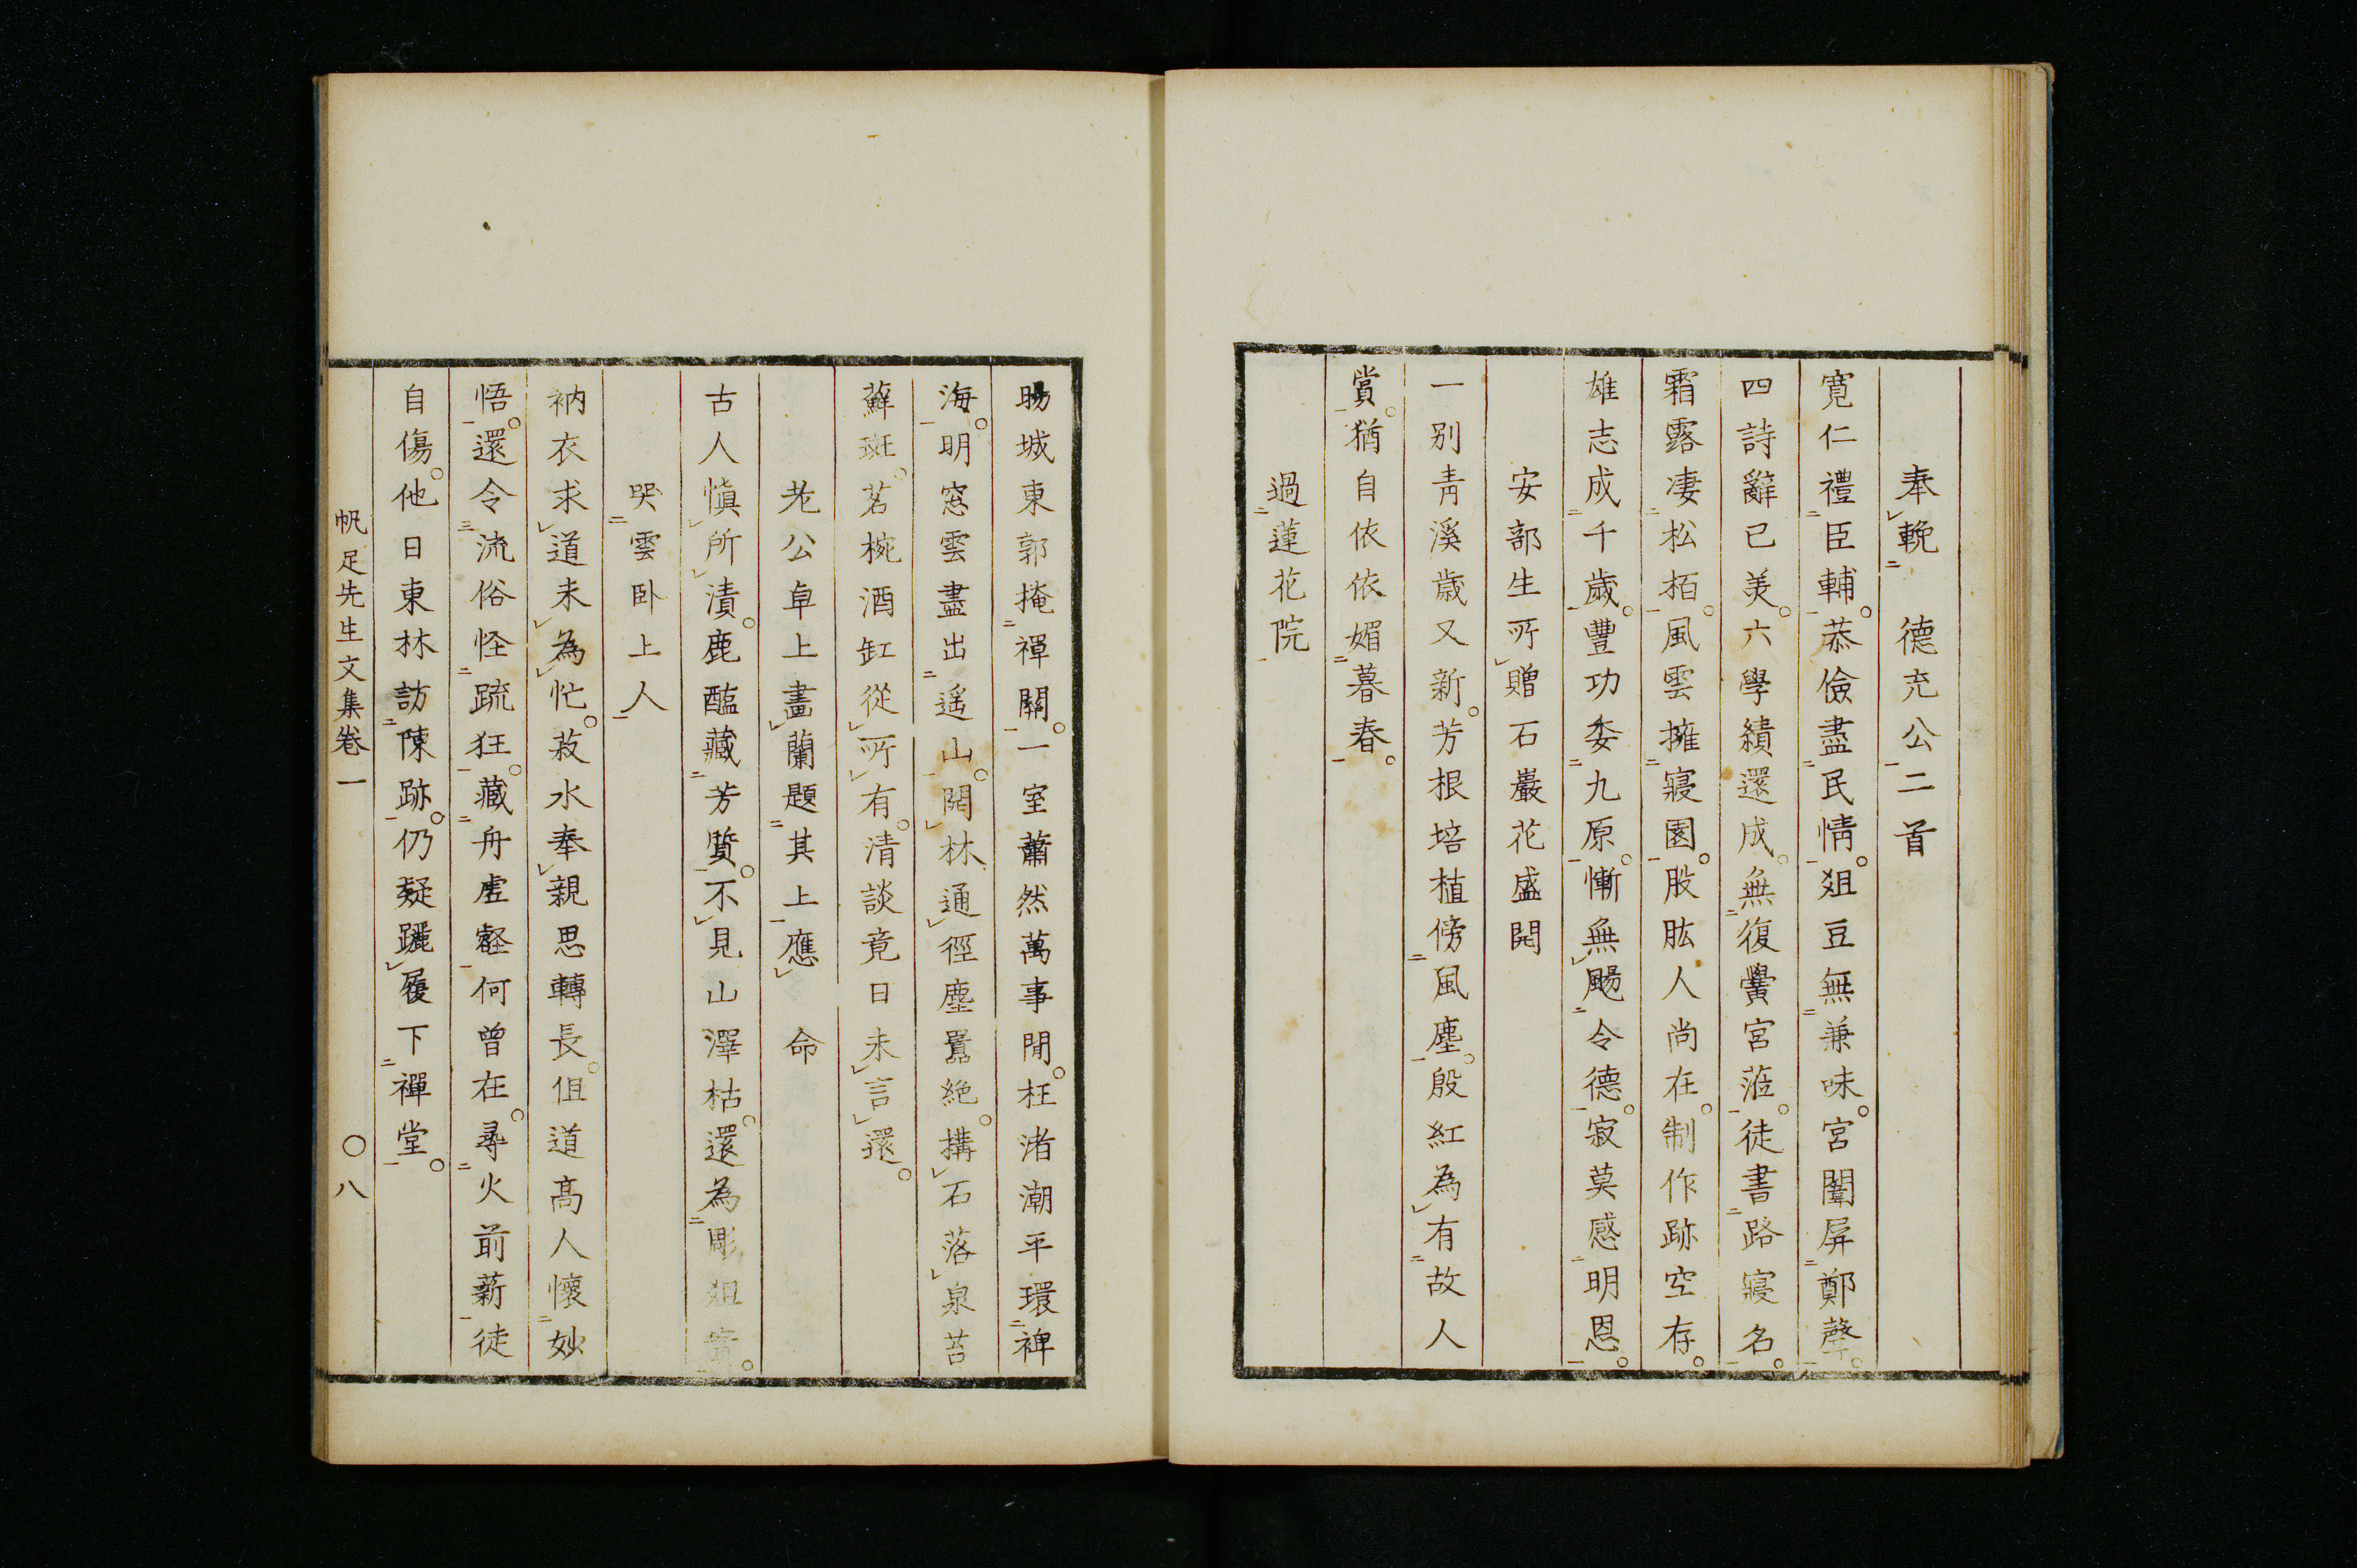 奉輓　德充公二首
寬仁禮臣輔。恭儉盡民情。俎豆無兼味。宮闈屏鄭聲。
四詩辭已美。六學績還成。無復黌宮涖。徒書路寢名。
霜露凄松栢。風雲擁寢園。股肱人尚在。制作跡空存。
雄志成千歲。豐功委九原。慚無颺令德。寂莫感明恩。
安部生所贈石巖花盛開
一別青溪歲又新。芳根培植傍風塵。殷紅為有故人
賞。猶自依依媚暮春。
過蓮花院
暘城東郭掩禪關。一室蕭然萬事閒。枉渚潮平環裨
海。明窓雲盡出遙山。闊林通徑塵囂絶。構石落泉苔
蘚斑。茗椀酒缸從所有。清談竟日未言還。
老公阜上畫蘭題其上應　命
古人愼所漬。鹿醢藏芳質。不見山澤枯。還為彫俎實。
哭雲卧上人
衲衣求道未為忙。菽水奉親思轉長。但道高人懷妙
悟。還令流俗怪疏狂。藏舟虛壑何曾在。尋火前薪徒
自傷。他日東林訪陳跡。仍疑躧履下禪堂。
帆足先生文集卷一　〇八